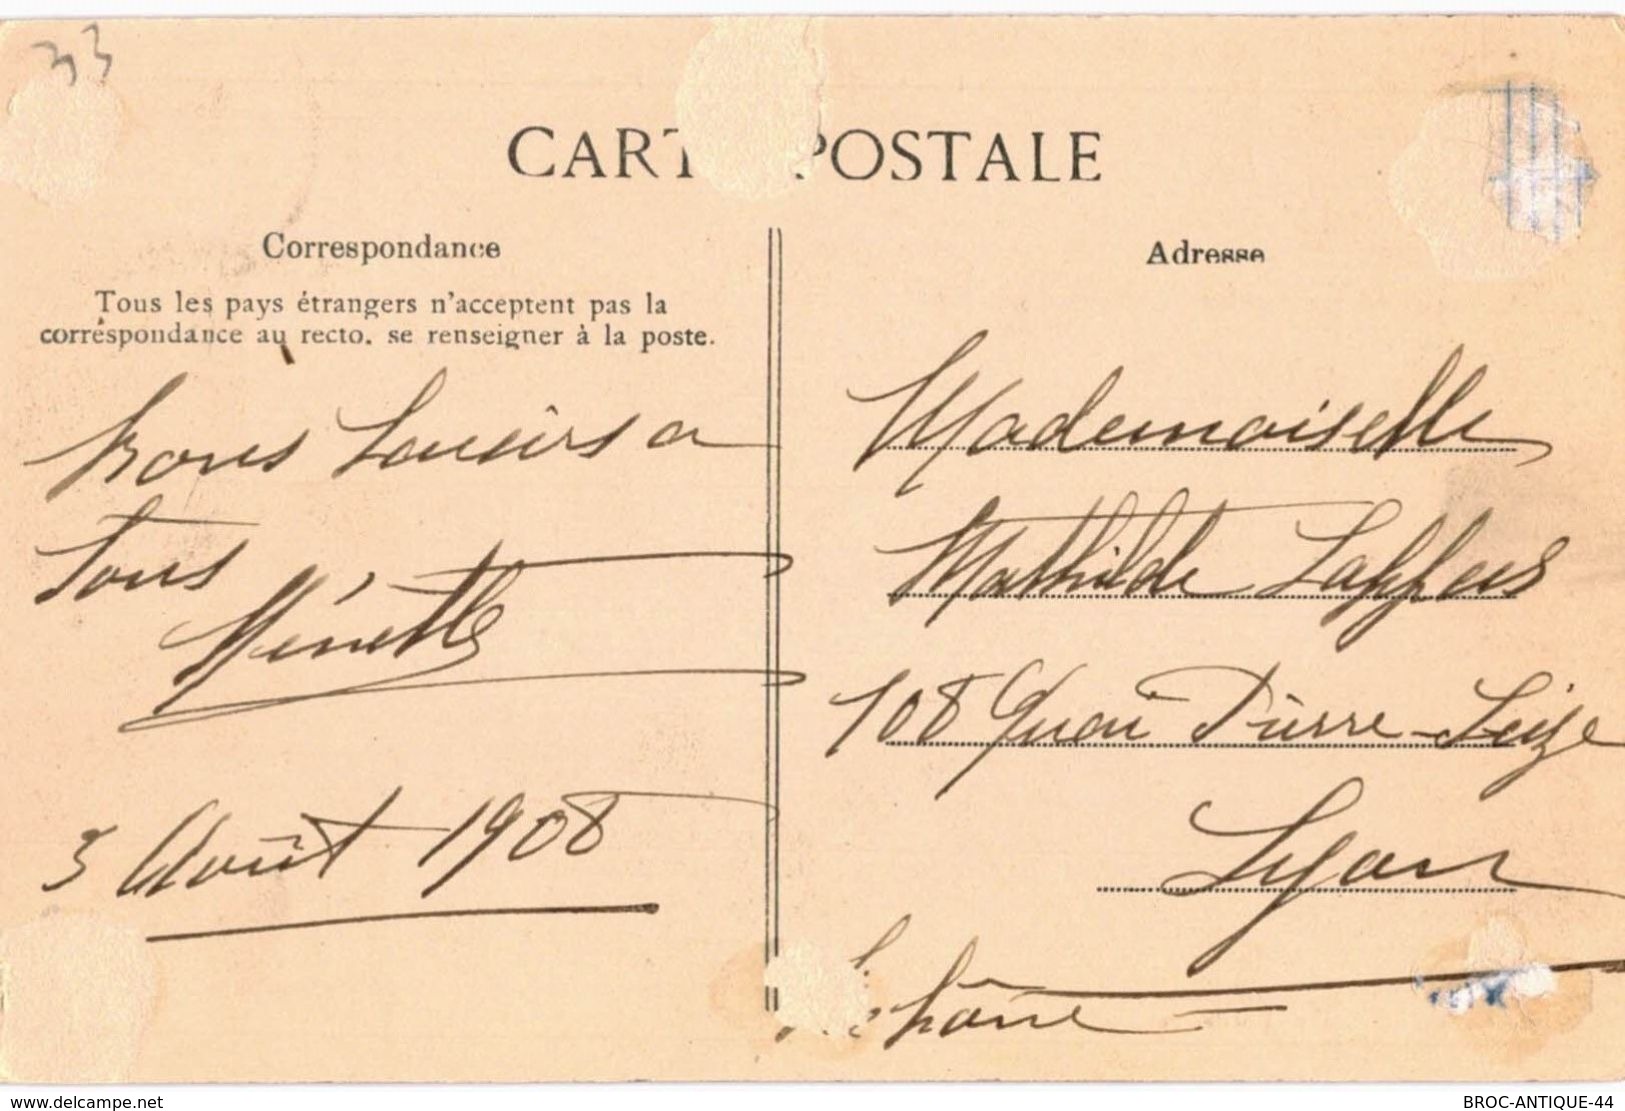 33
CARTE POSTALE
Correspondance
Tous les pays étrangers n'acceptent pas la
correspondance au recto. se renseigner à la poste.
Bons baisers a
Tous
Ménette
3 Août 1908
Adresse
Mademoiselle
Mathilde
108 Quai Pierre-Seize
Lyon
Rhône
delcampe.net
BROC-ANTIQUE-44